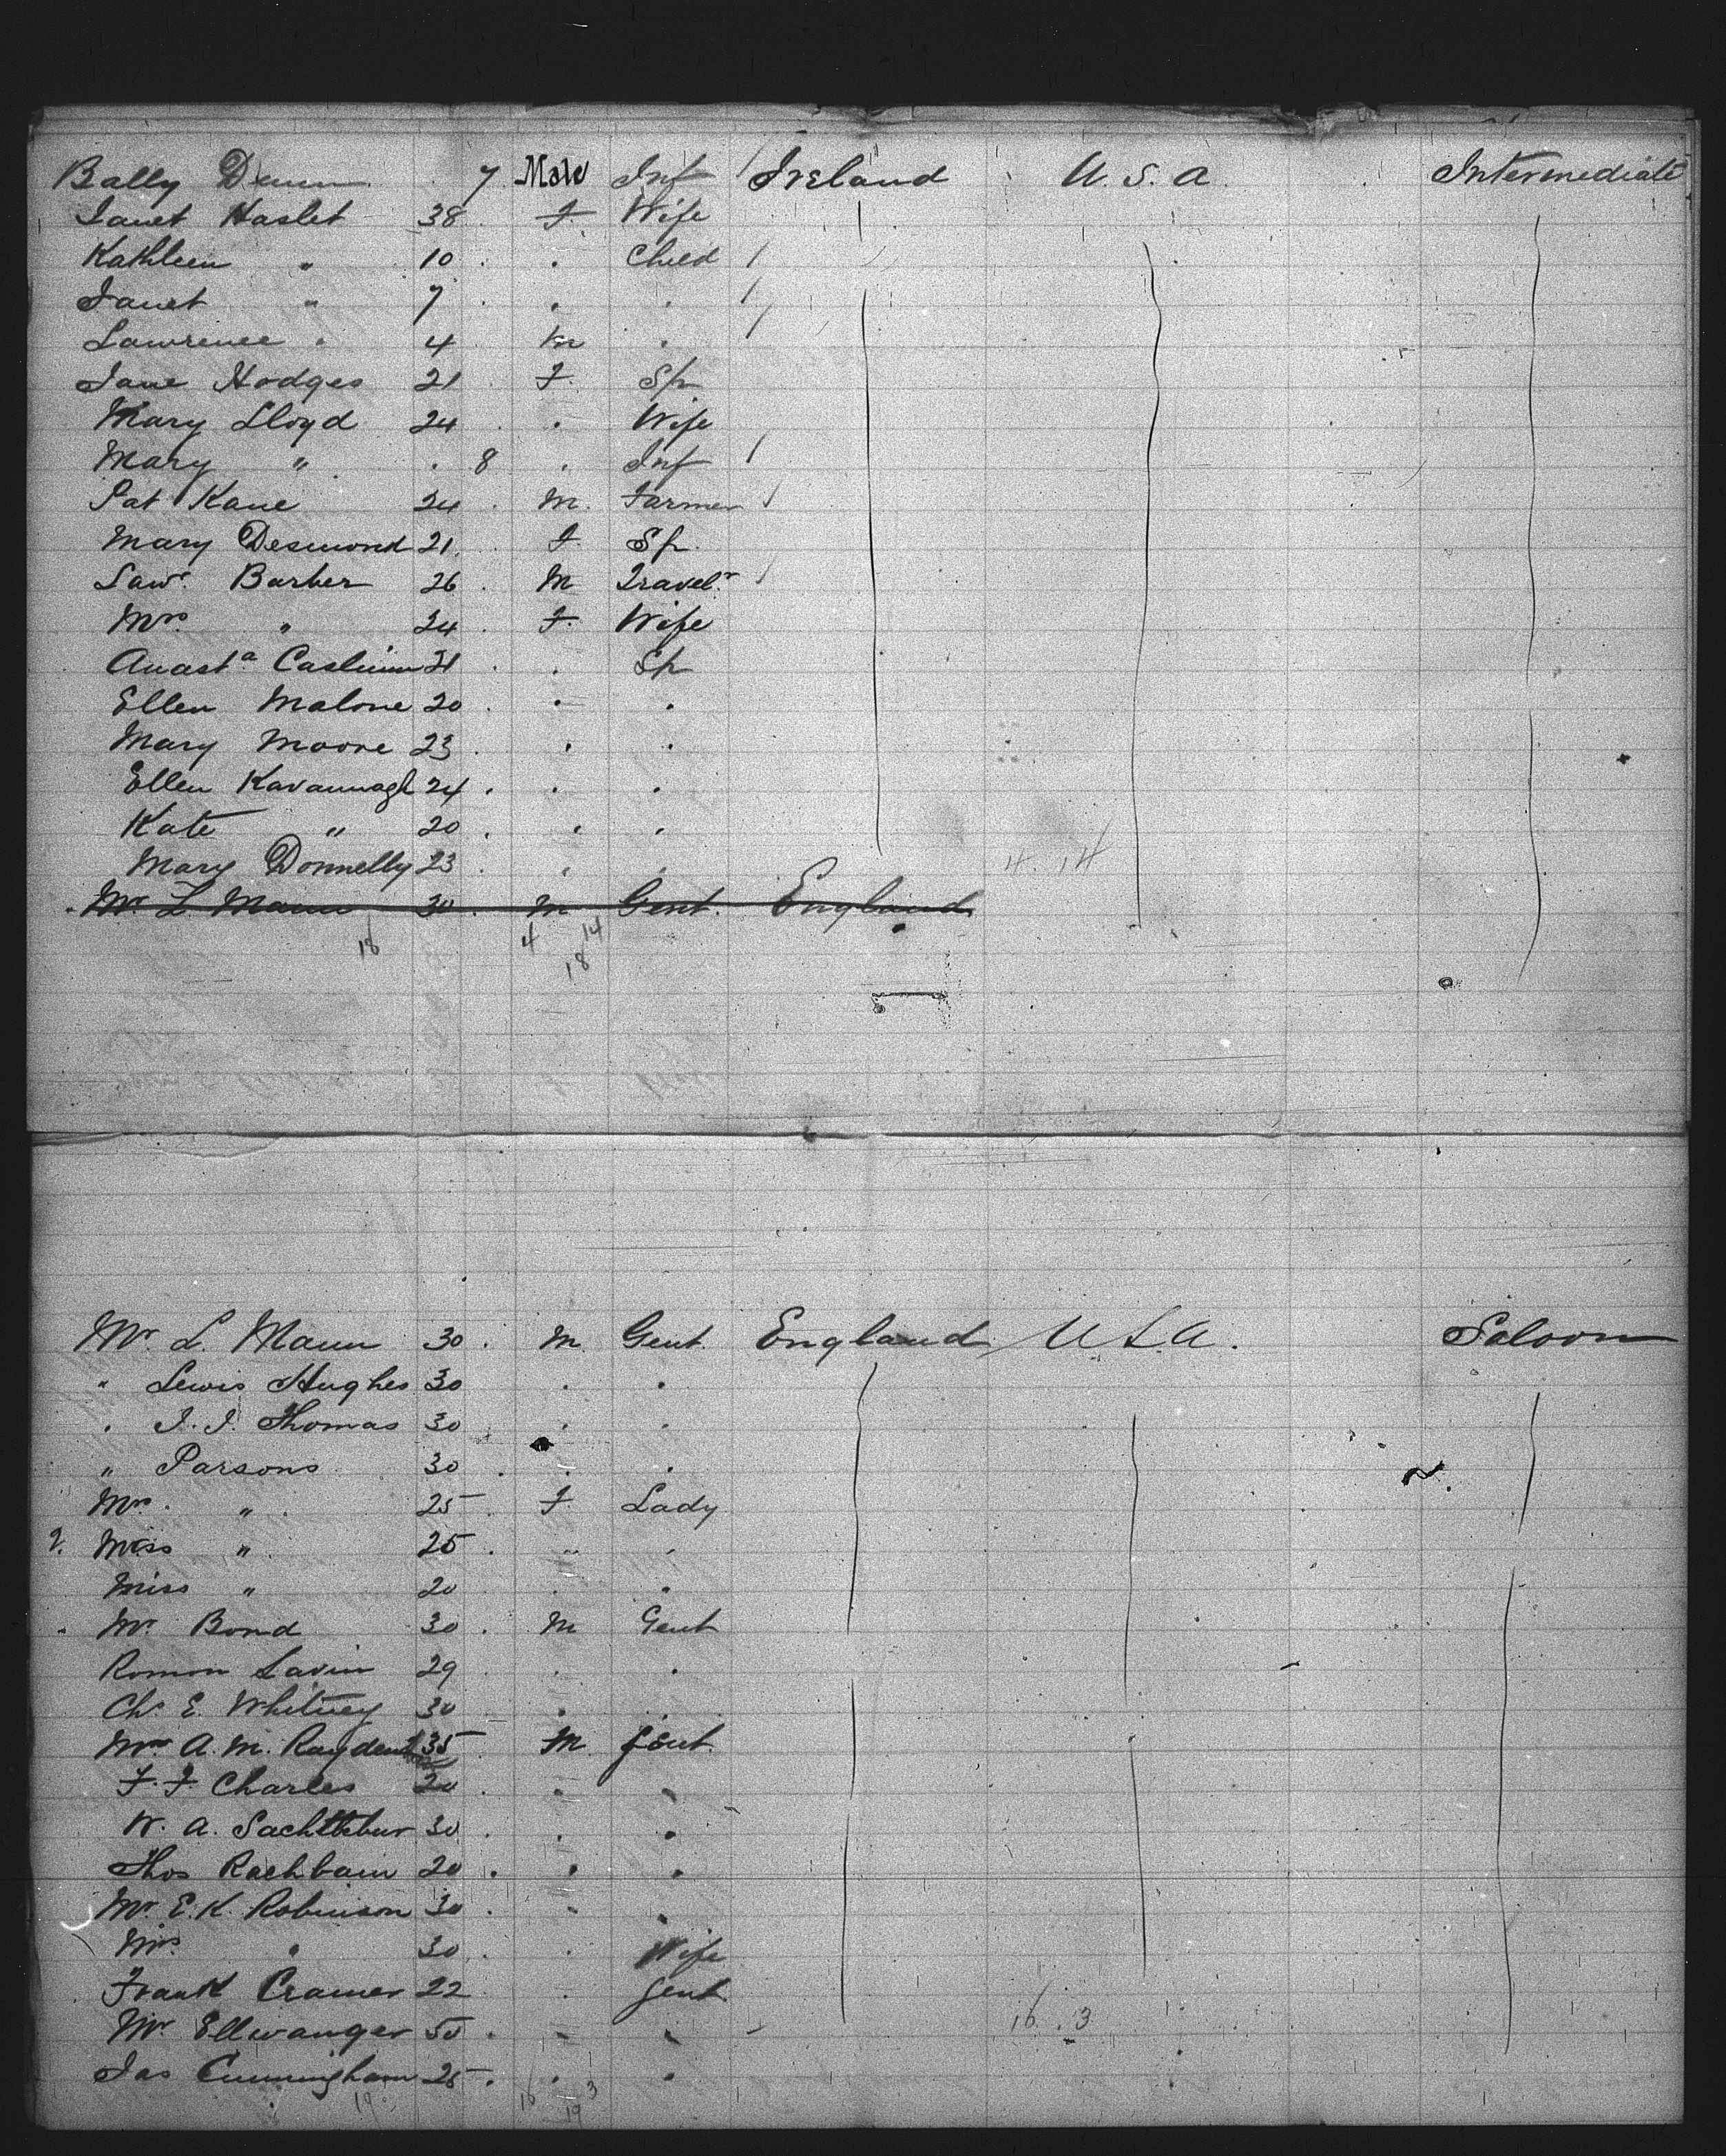 Bally Dunn 7 Male Inf Ireland U.S.A Intermediate
Janet Haslet 38 F. Wife
Kathleen " 10 . Child
Janet " 7 . .
Lawrence . 4 m .
Jane Hodges 21 F. Sp
Mary Lloyd 24 . Wife
Mary " 8 . Inf
Pat Kane 24 M. Farmer
Mary Desmond 21 F. Sp.
Lawr. Barber 26 M Travelr.
Mrs " 24 F. Wife
Anasta 21 . Sp
Ellen Malone 20 . .
Mary Moore 23 . .
Ellen Kavannagh 24 . .
Kate " 20 . .
Mary Donnelly 23 . .
4 . 14
Mr L Mann 30 . m Gent. England
18 4 14
18
Mr. L. Mann 30 . m. Gent. England U S A. Saloon
" Lewis Hughes 30 . .
. J. J. Thomas 30 . .
" Parsons 30 . .
Mrs. " 25 F. Lady
2. Miss " 25 . " .
Miss " 20 . .
" Mr. Bond 30 . M Gent
Romon Lavin 29 . .
Chs E. Whitney 30 .
A. M. 35 M. Gent.
F. F. Charles 20 . " "
W. A. 30 . . .
Thos 20 . . .
Mr. E. K. Robinson 30 . " .
Mrs " 30 . . Wife
Frank Cramer 22 . Gent
Mr. Ellwanger 50 . " "
16 . 3
Jas Cunningham 25 . . .
19 16 3
19